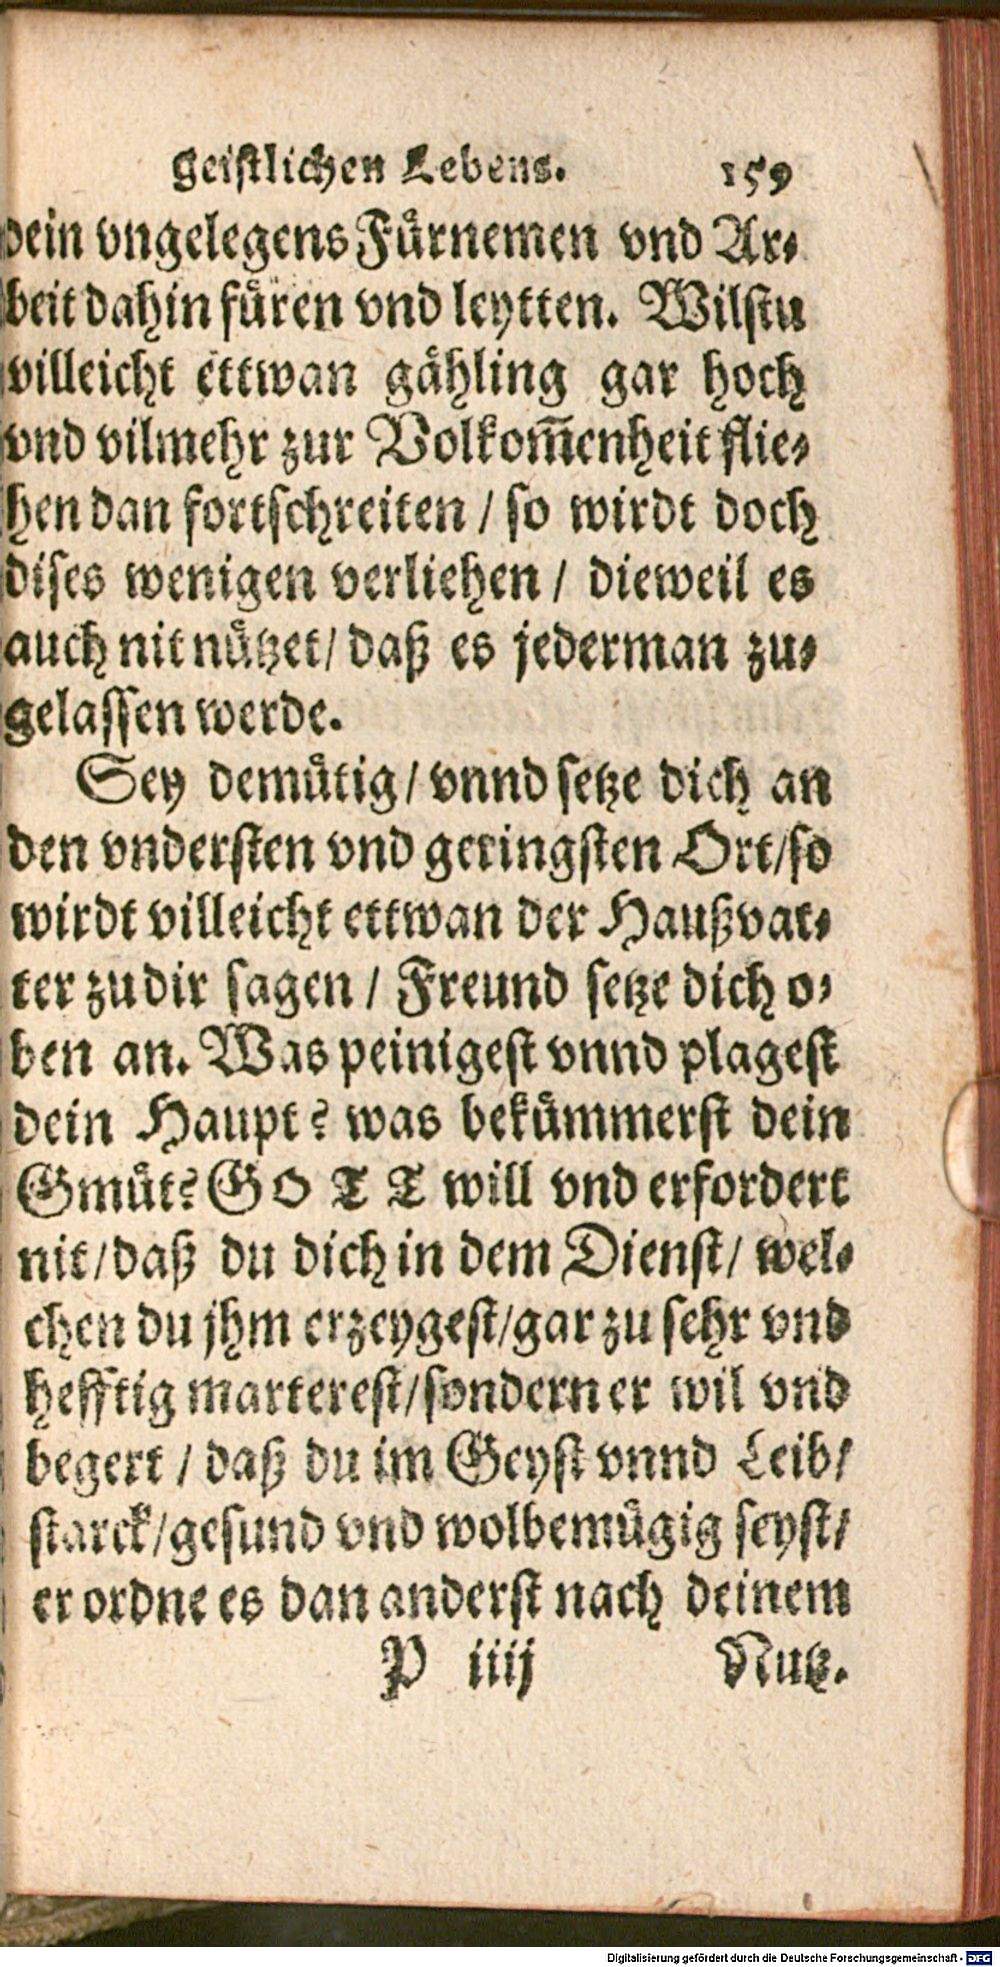 geistlichen Lebens. 159
dein vngelegens Fürnemen vnd Ar-
beit dahin füren vnd leytten. Wilstu
villeicht ettwan gähling gar hoch
vnd vilmehr zur Volkom̃enheit flie-
hen dan fortschreiten / so wirdt doch
dises wenigen verliehen / dieweil es
auch nit nützet / daß es jederman zu-
gelassen werde.
Sey demütig / vnnd setze dich an
den vndersten vnd geringsten Ort / so
wirdt villeicht ettwan der Haußvat-
ter zu dir sagen / Freund setze dich o-
ben an. Was peinigest vnnd plagest
dein Haupt? was bekümmerst dein
Gmüt? GOTT will vnd erfordert
nit / daß du dich in dem Dienst / wel-
chen du jhm erzeygest / gar zu sehr vnd
hefftig marterest / sondern er wil vnd
begert / daß du im Geyst vnnd Leib /
starck / gesund vnd wolbemügig seyst /
er ordne es dan anderst nach deinem
P iiij Nutz.
Digitalisierung gefördert durch die Deutsche Forschungsgemeinschaft - DFG